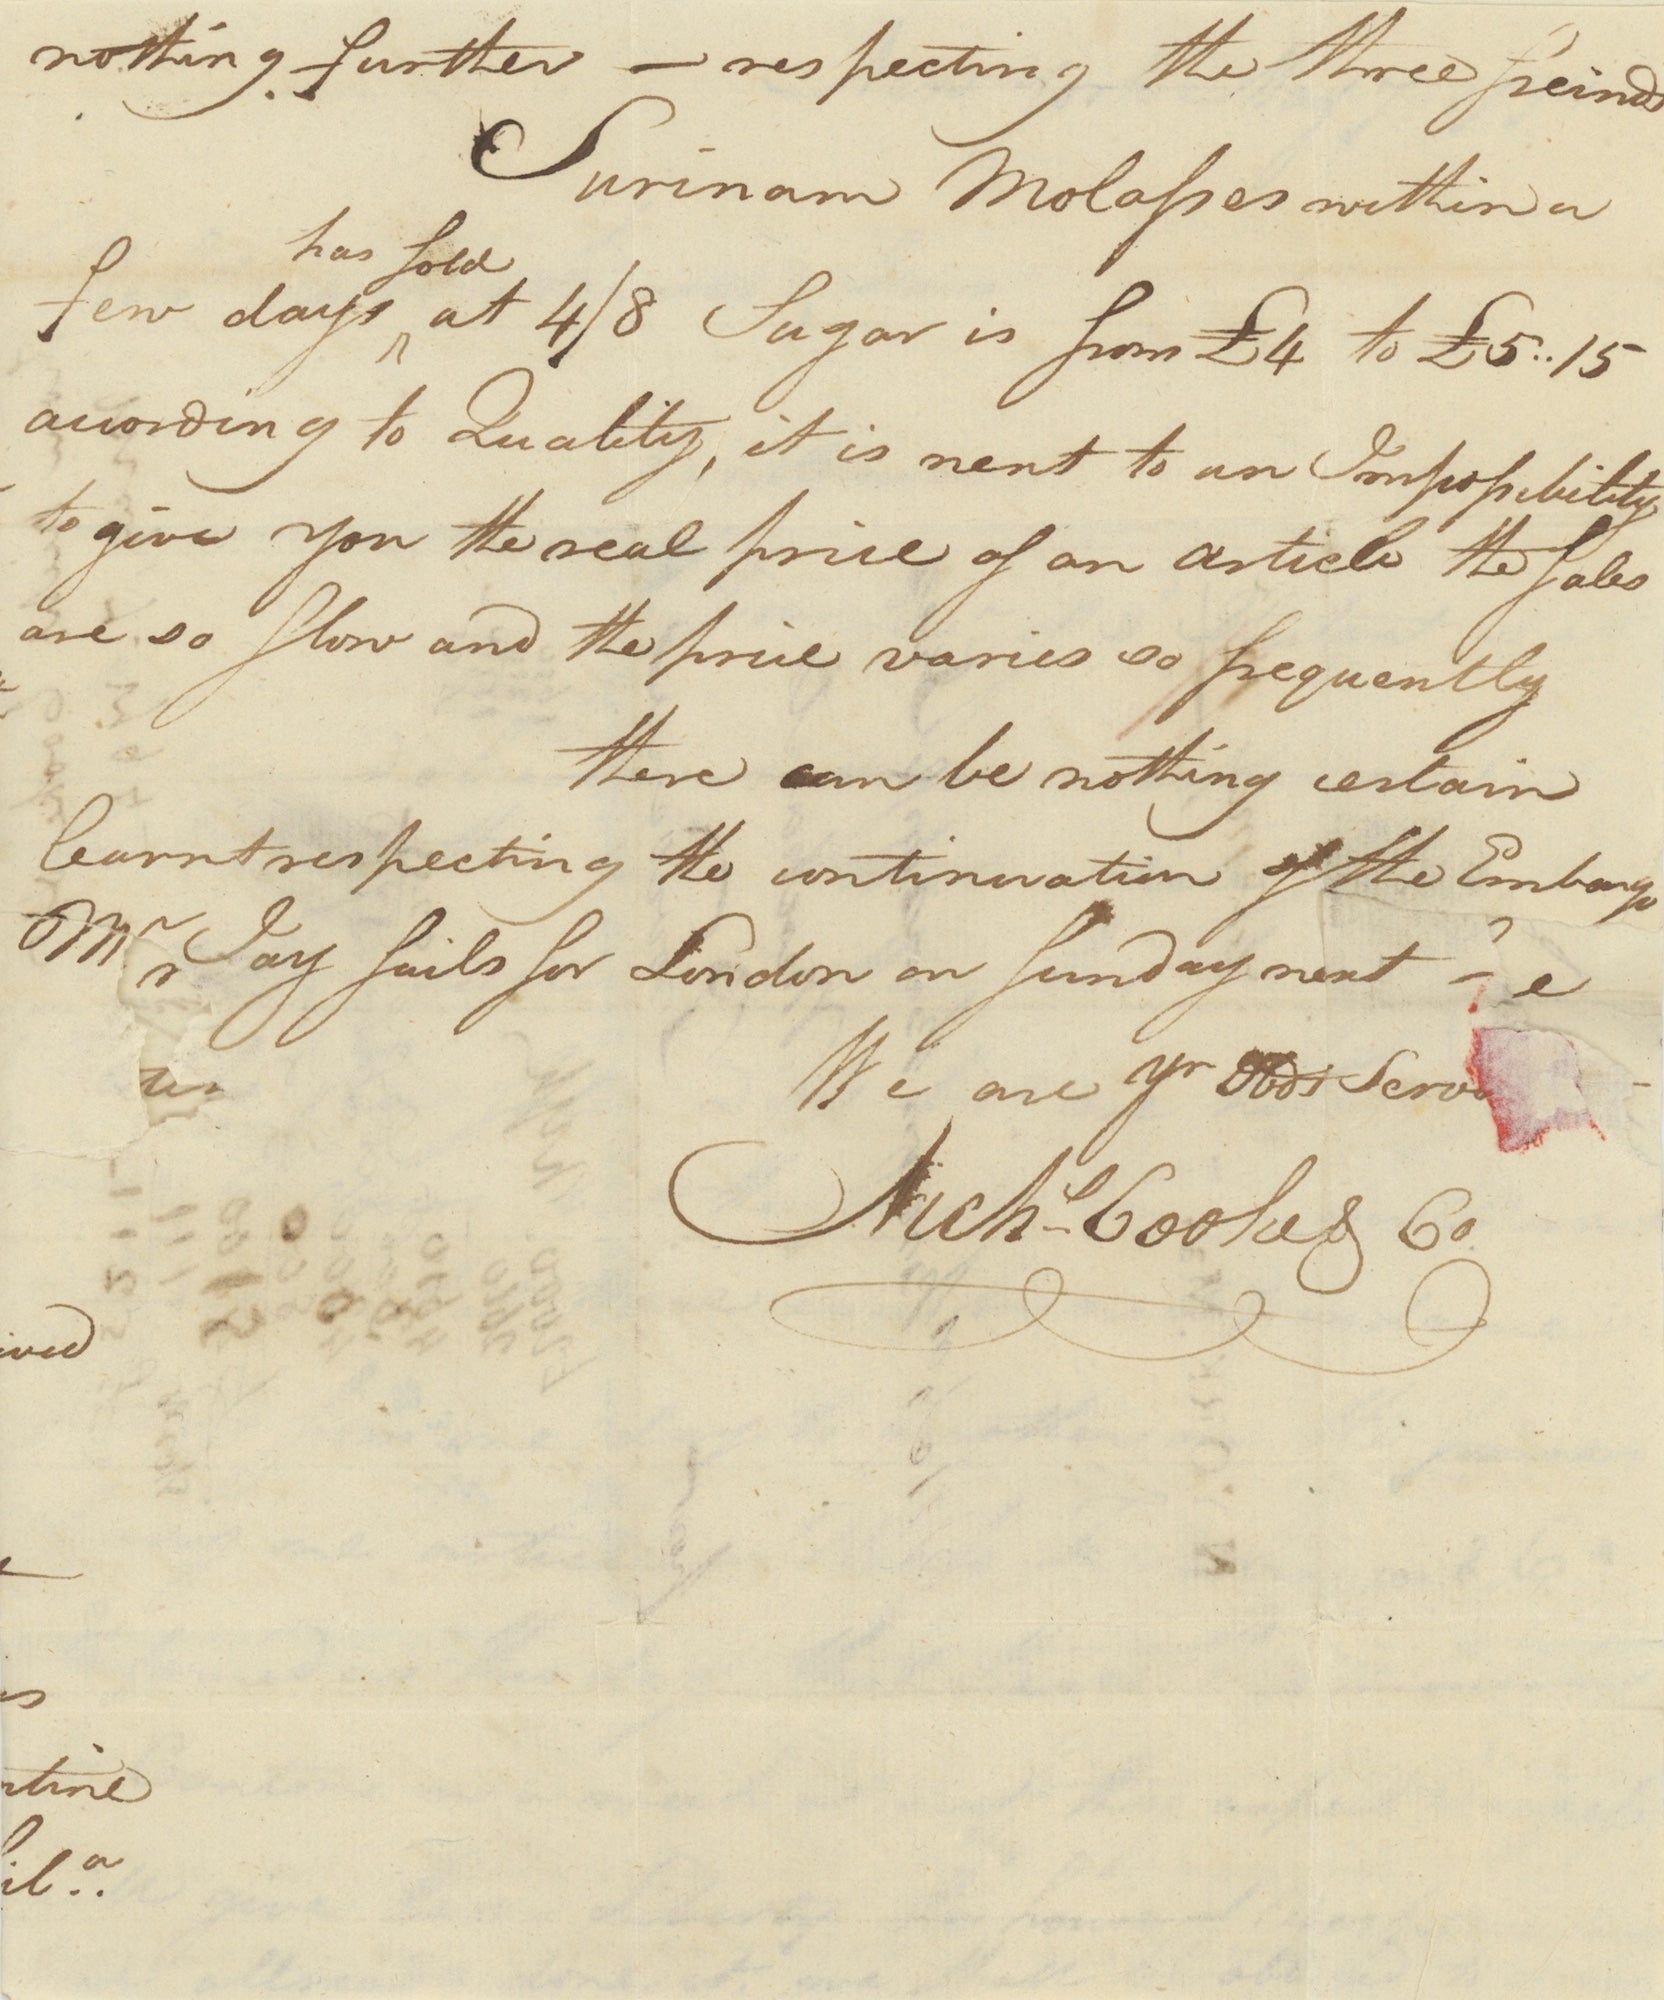 nothing further — respecting the three freinds
Surinam Molasses within a
has sold
few days ^ at 4/8 Sugar is from £4 to £5..15
according to Quality, it is next to an Impossibility
to give you the real price of an article the sales
are so slow and the price varies so frequently
there can be nothing certain
learnt respecting the continuation of the Embargo
Mr Jay sails for London on sunday next
We are yr Obdt Serv
Nichs Cooke & Co
ived
ntine
il.a